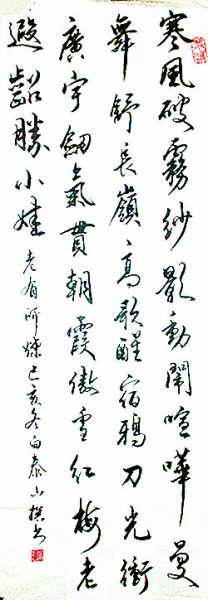 寒風破霧紗影動鬧喧嘩曼
舞舒長嶺高歌醒宿鴉刀光衝
廣宇劍氣貫朝霞傲雪紅梅老
遐齡勝小娃
老有所樂己亥冬白泰山撰書